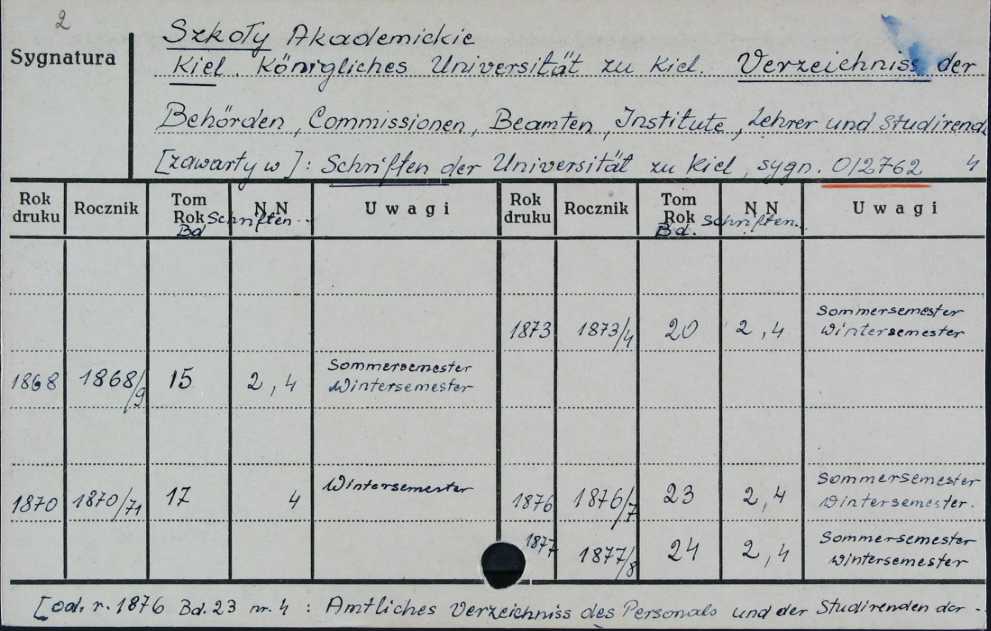 2
Sygnatura
Szkoły Akademickie
Kiel. Königliches Universität zu Kiel. Verzeichniss der
Behörden, Commissionen, Beamten, Institute, Lehrer und Studirend
[zawarty w]: Schriften der Universität zu Kiel, sygn. 012762 4
Rok druku Rocznik Tom Rok Bd N N Schriften... Uwagi Rok druku Rocznik Tom Rok Bd. N N Schriften... Uwagi
1873 1873/4 20 2, 4 Sommersemester
Wintersemester
1868 1868/9 15 2, 4 Sommersemester
Wintersemester
1870 1870/71 17 4 Wintersemester 1876 1876/7 23 2, 4 Sommersemester
Wintersemester.
1877 1877/8 24 2, 4 Sommersemester
Wintersemester
[od. r. 1876 Bd. 23 nr. 4 : Amtliches Verzeichniss des Personals und der Studirenden der -